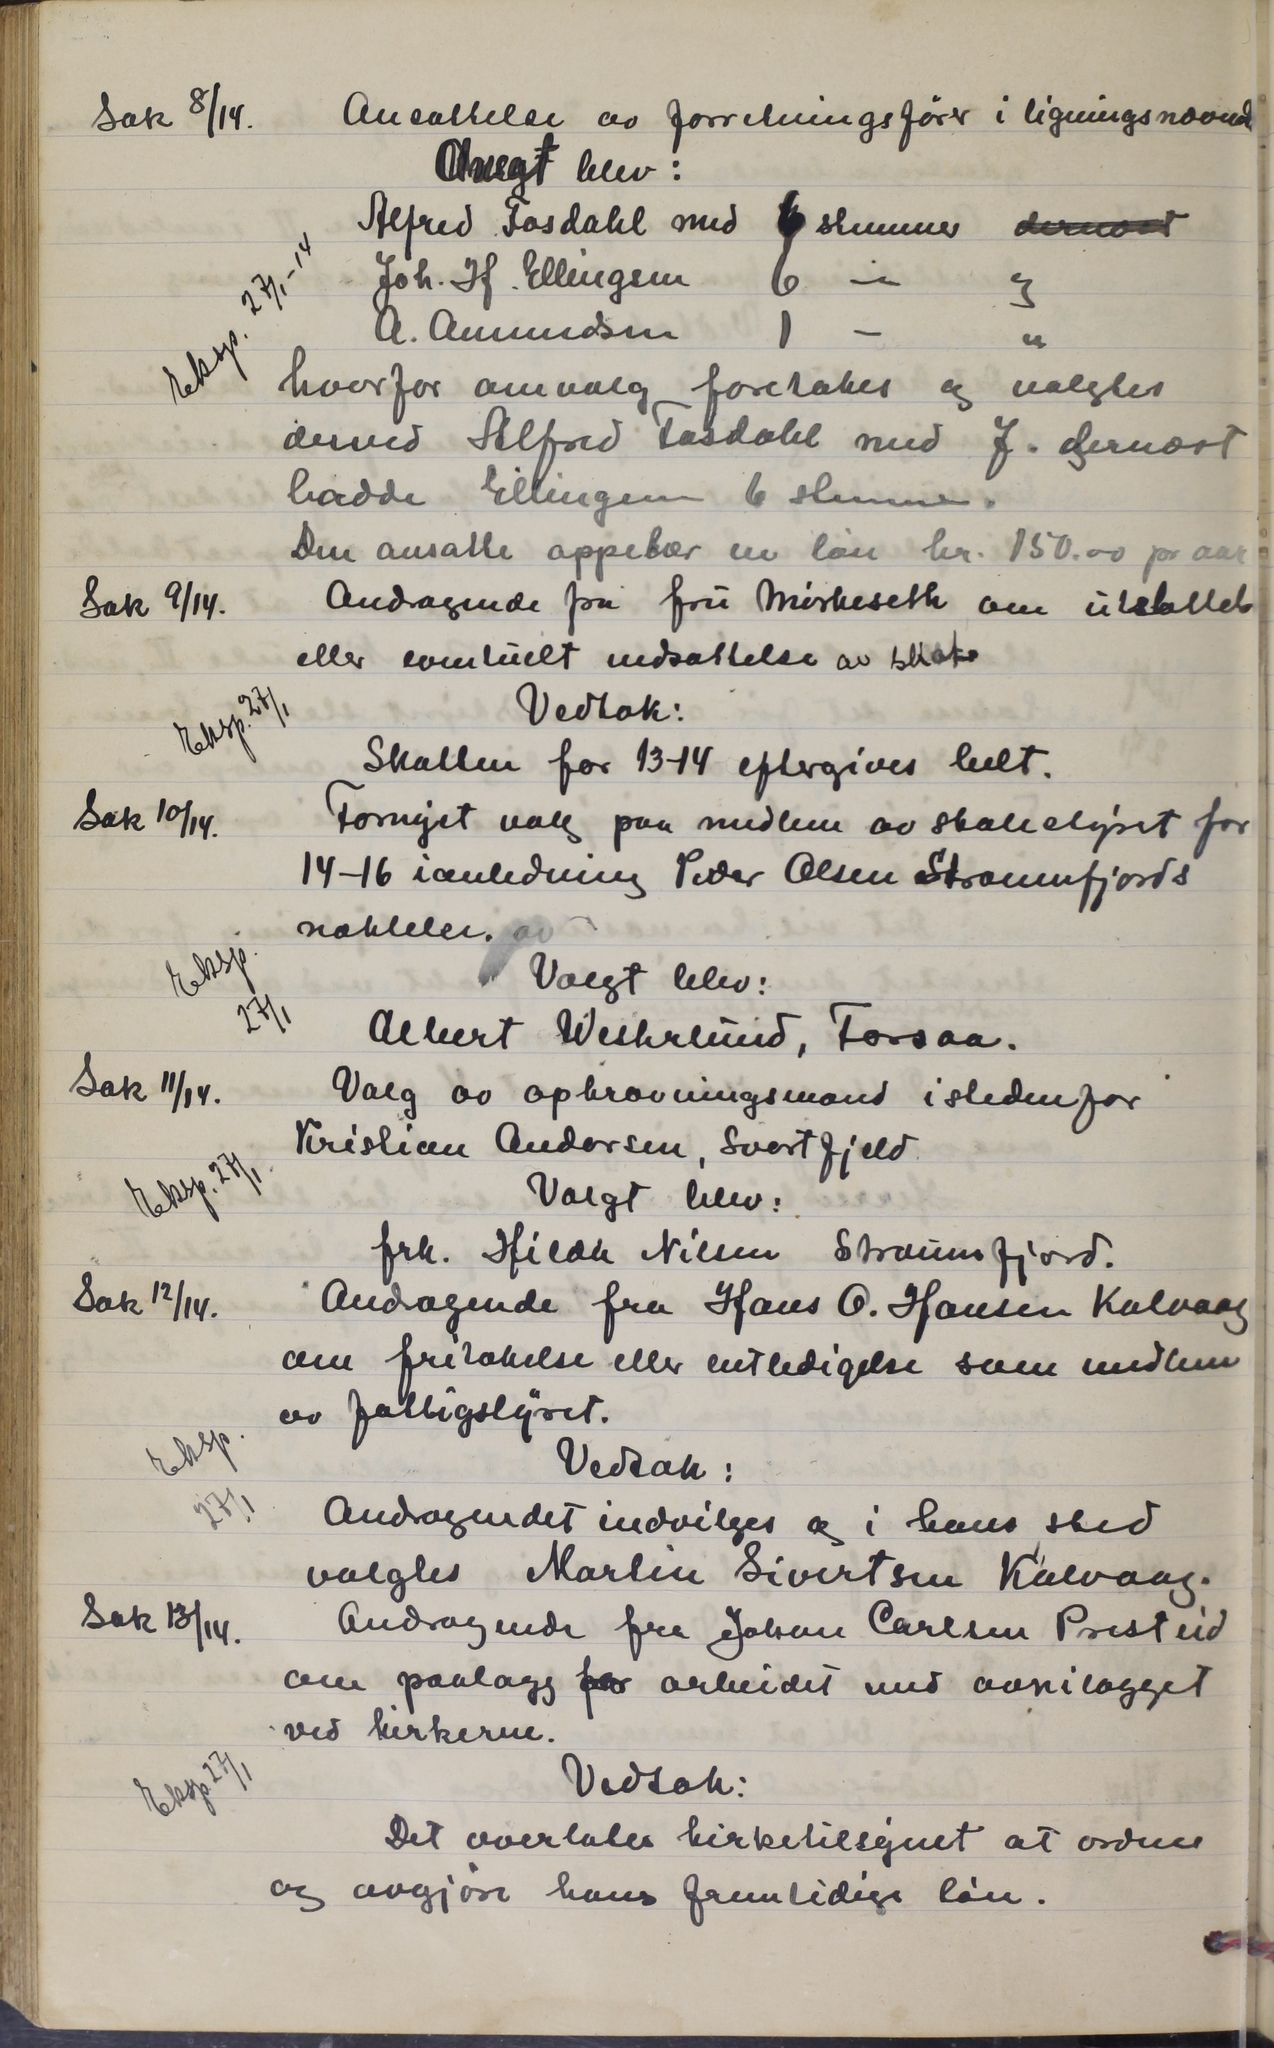 Sak 8/14. Ansættelse av forretningsförer i ligningsnævnd
Valgt blev:
Alfred Fosdahl med 6 stemmer dernæst
Joh. Hf. Ellingsen 6 — "
A. Amundsen 1 — "
Eksp. 27/1-14
hvorfor omvalg foretokes og valgtes
derved Alfred Fosdahl med 7. dernæst
hadde Ellingsen 6 stemmer.
Den ansatte oppebær en lön kr. 150.00 pr aar
Sak 9/14. Andragende fra fru Mörkeseth om utsættelse
eller eventuelt nedsættelse av skat
Eksp. 27/1
Vedtak:
Skatten for 13-14 eftergives helt.
Sak 10/14. Fornyet valg paa medlem av skolestyret for
14-16 i anledning Peder Olsen Straumfjords
nektelse. av
Eksp. 27/1
Valgt blev:
Albert Westerlund, Forsaa.
Sak 11/14. Valg av opkrævningsmand istedenfor
Kristian Andersen, Svartfjeld
Eksp. 27/1
Valgt blev:
frk. Hilda Nilsen Straumfjord.
Sak 12/14. Andragende fra Hans O. Hansen Kalvaag
om fritakelse eller entledigelse som medlem
av fattigstyret.
Eksp. 27/1
Vedtak:
Andragendet indvilges og i hans sted
valgtes Martin Sivertsen Kalvaag.
Sak 13/14. Andragende fra Johan Carlsen Presteid
om paalægg for arbeidet med
ved kirkerne.
Eksp. 27/1
Vedtak:
Det overlates kirketilsynet at ordne
og avgjöre hans fremtidige lön.